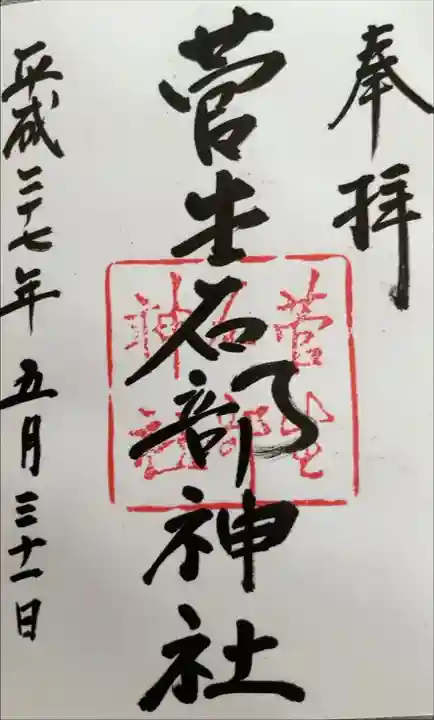 奉拝
菅生石部神社
菅生
石部
神社
平成二十七年五月三十一日